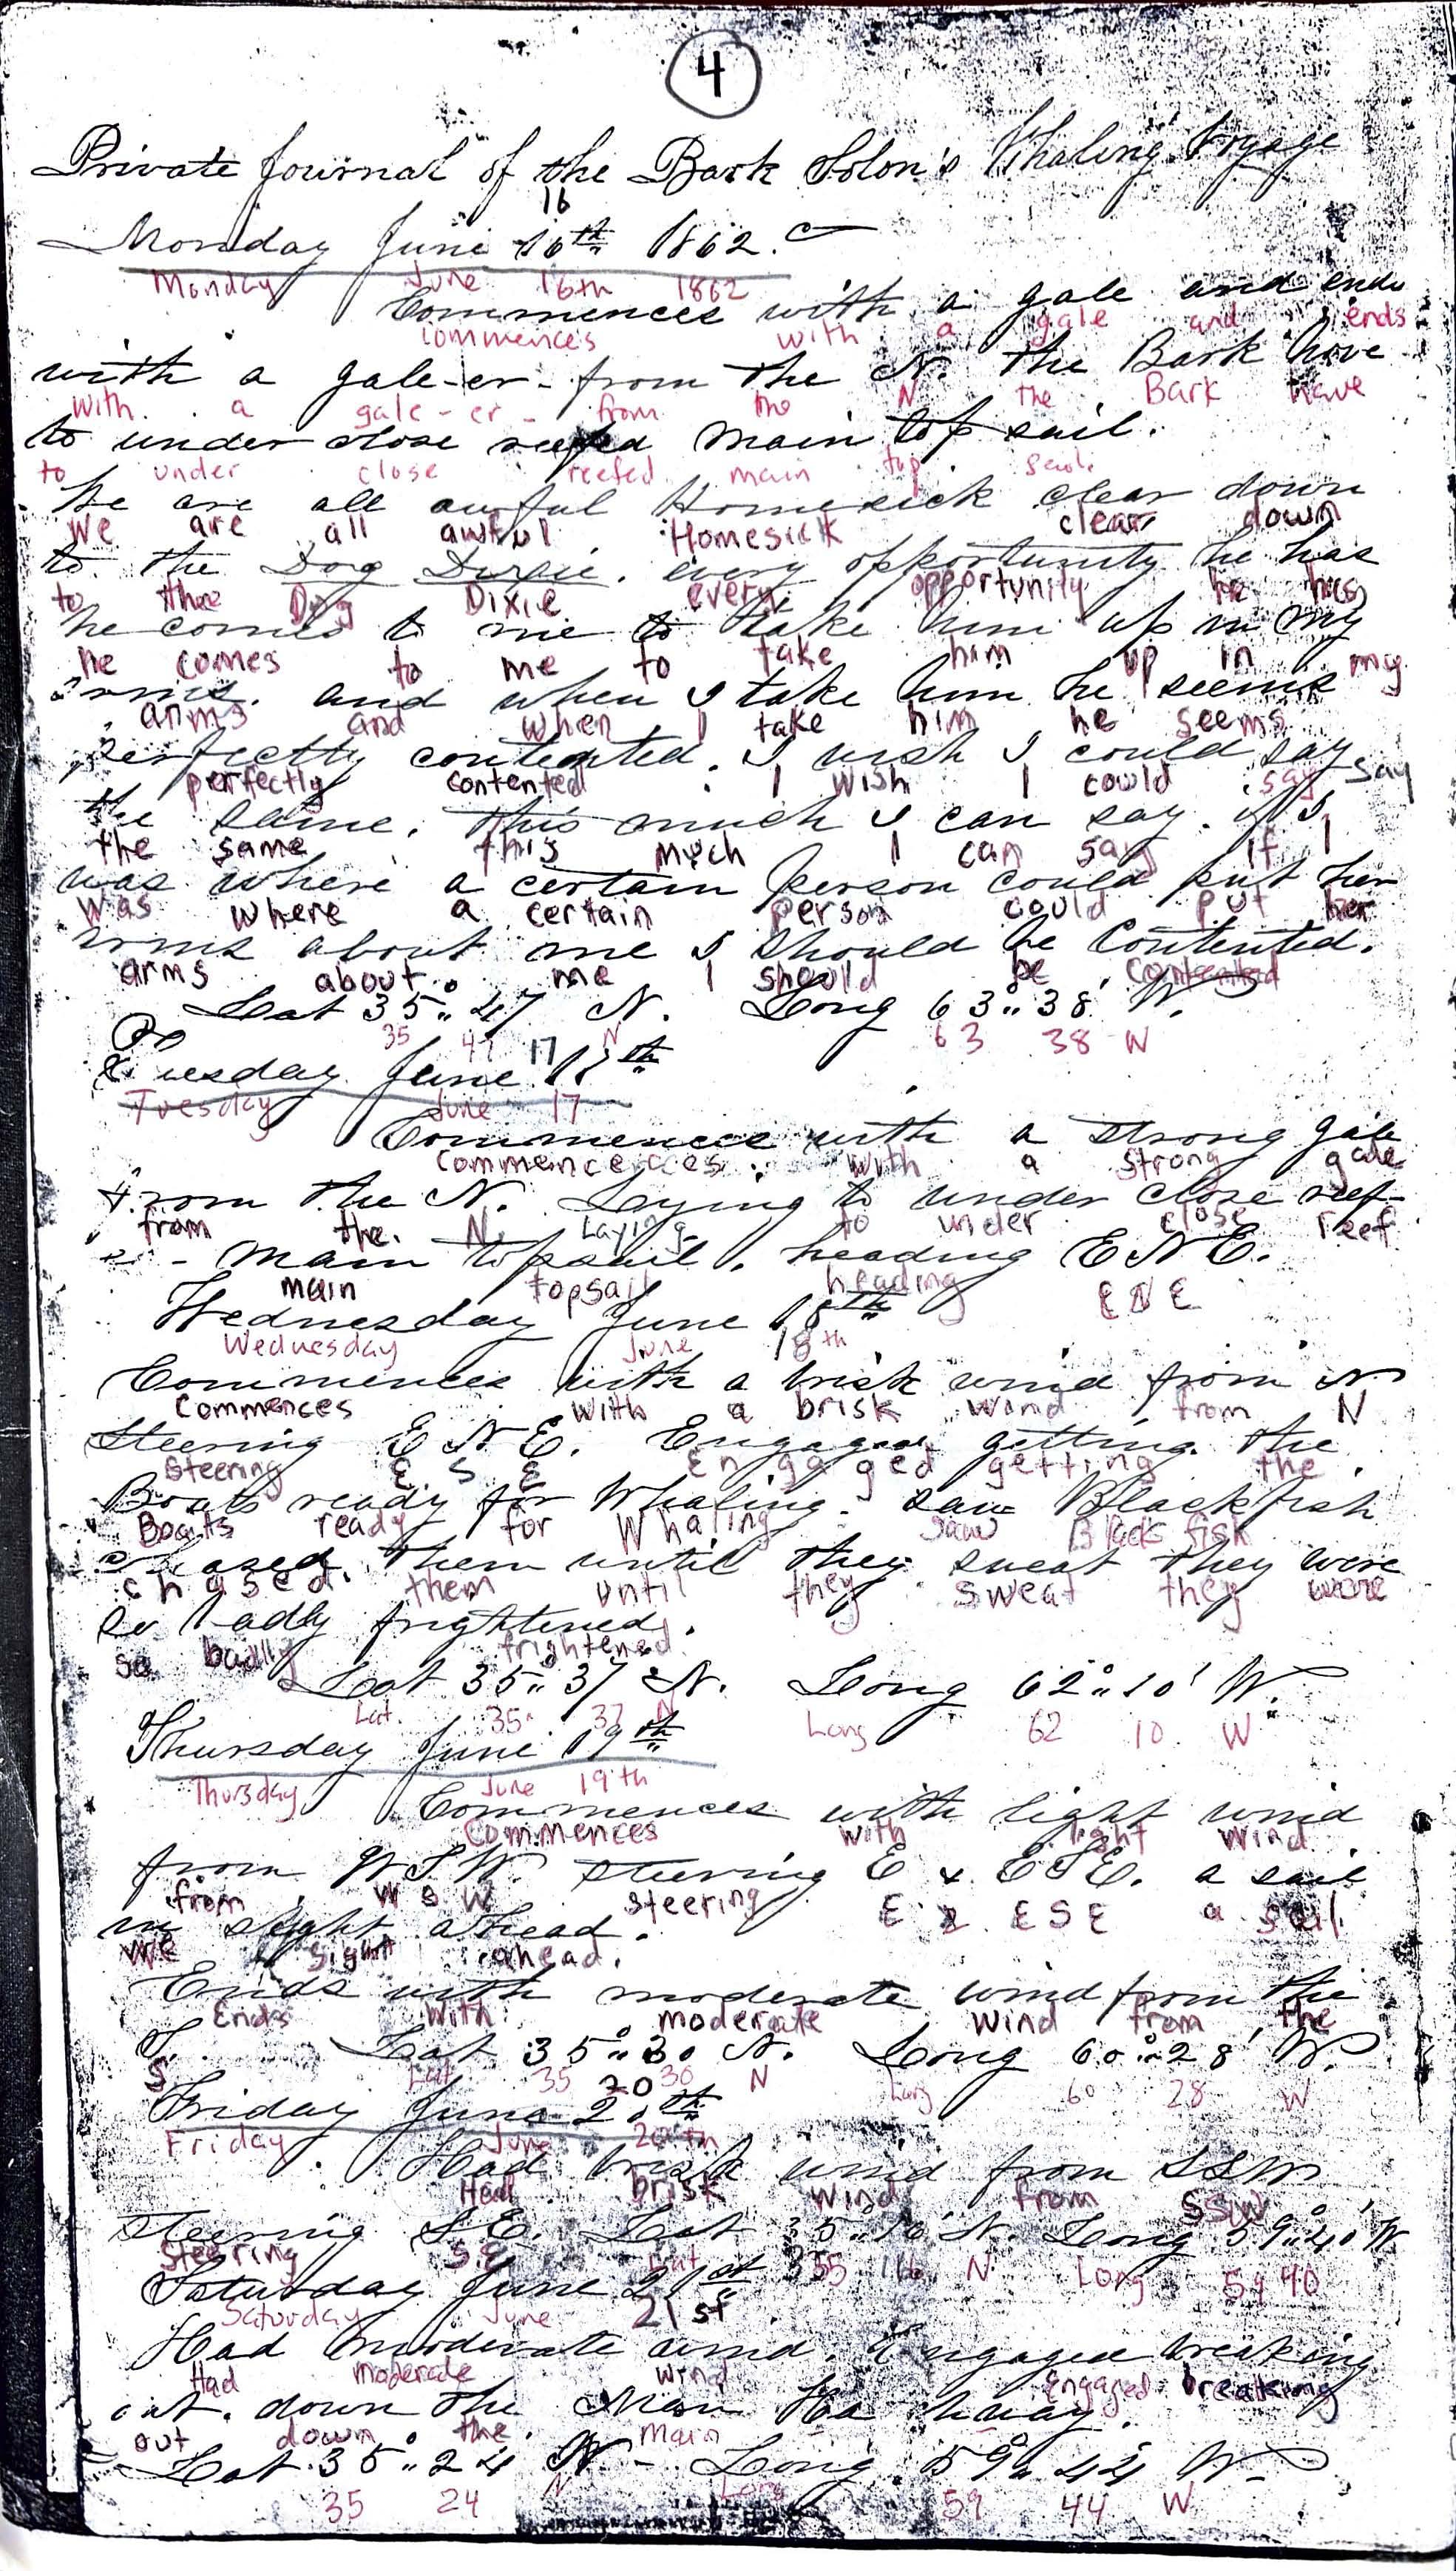 4
Private Journal of the Bark Solon's Whaling Voyage
16
Monday June 16th 1862.
Monday June 16th 1862
Commences with a gale and ends
commences with a gale and ends
with a gale-er- from the N. the Bark hove
with a gale-er- from the N the Bark have
to under close reefed main top sail.
to under close reefed main top sail.
We are all awful Homesick clear down
We are all awful Homesick clear down
to the Dog Dixie. every opportunity he has
to the Dog Dixie every opportunity he has
he comes to me to take him up in my
he comes to me to take him up in my
arms. and when I take him he seems
arms and when I take him he seems
perfectly contented. I wish I could say
perfectly contented. I wish I could say say
the same. this much I can say. if I
the same this much I can say if I
was where a certain person could put her
was where a certain person could put her
arms about me I should be Contented.
arms about me I should be contented
Lat 35° 47 N. Long 63° 38' W.
35 47 N 63 38 W
17
Tuesday June 17th
Tuesday June 17
Commences with a strong gale
commences with a strong gale
from the N. Laying to under close reef-
from the N. Laying to under close reef
- main topsail. heading E N E.
main topsail heading E N E
Wednesday June 18th
Wednesday June 18th
Commences with a brisk wind from N
Commences with a brisk wind from N
Steering E N E. Engaged getting the
Steering E S E Engaged getting the
Boats ready for Whaling. saw Blackfish
Boats ready for Whaling saw Black fish
chased them until they sweat they were
chased. them until they sweat they were
so badly frightened.
so badly frightened.
Lat 35° 37 N. Long 62° 10' W.
Lat. 35° 37 N Long 62 10 W
Thursday June 19th
Thursday June 19th
Commences with light wind
Commences with light wind
from W.S.W. steering E & ESE. a sail
from W S W steering E & ESE a sail
in sight ahead.
we sight ahead.
Ends with moderate wind from the
Ends with moderate wind from the
S. Lat 35° 30 N. Long 60° 28' W.
S Lat 35 30 N Long 60 28 W
20
Friday June 20th
Friday June 20th
Had brisk wind from SSW
Had brisk wind from SSW
steering S.E. Lat 35° 16' N. Long 59° 40' W
Steering S.E Lat 35 16 N Long 59 40
Saturday June 21st
Saturday June 21st
Had moderate wind. Engaged breaking
Had moderate wind Engaged breaking
out. down the Main Hatchway.
out down the Main
Lat 35° 24 N - Long. 59° 44 W-
35 24 N Long 59 44 W